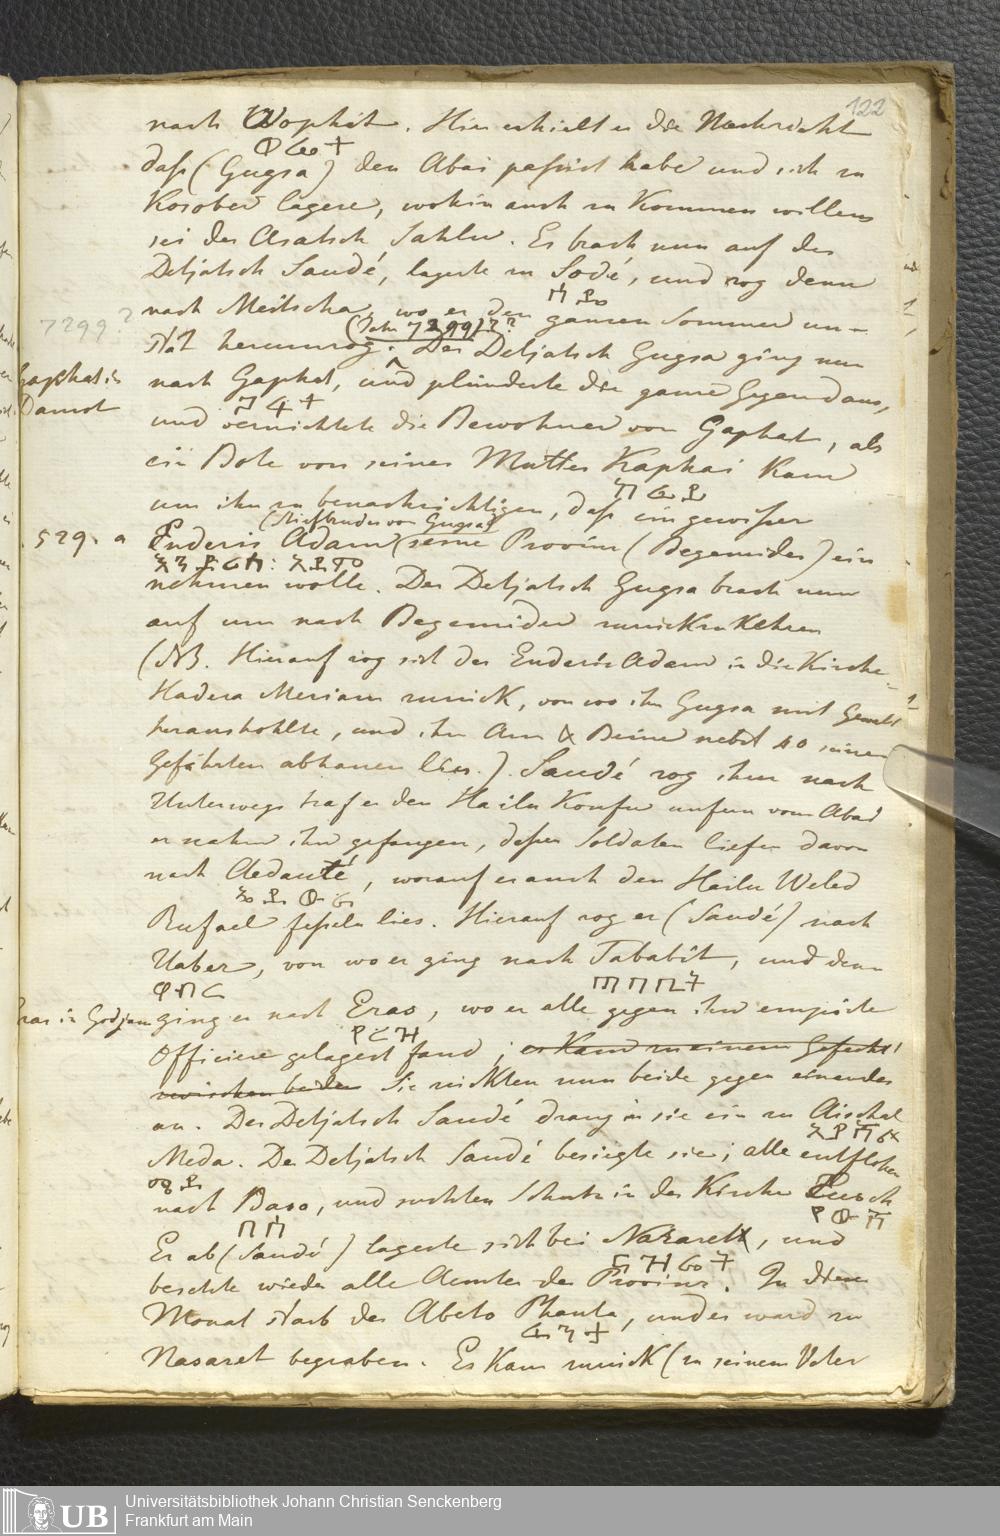 122
nach Wophit. Hier erhielt er die Nachricht
ወፊት
daß (Gugsa) den Abai passirt habe und sich zu
Kosober lagere, wohin auch zu Kommen willens
sei der Asatsch Sahlu. Es brach nun auf der
Detjatsch Saudé, lagerte zu Sodé, und zog denn
ሶዴ
nach Meitscha, wo er den ganzen Sommer un-
7299?
(Jahr 7299)??
stät herumzog. Der Detjatsch Gugsa ging nun
Gaphat in
Damot
nach Gaphat, und plünderte die ganze Gegend aus,
ጋፋት
und vernichtete die Bewohner von Gaphat, als
ein Bote von seiner Mutter Kaphai Kam
ከፈይ
um ihn zu benachrichtigen, daß ein gewisser
(Stiefbruder von Gugsa)
529. a
Enderis Adam (seine Provinz (Begemider) ein
እንድርስ፡ አዳም
nehmen wolle. Der Detjatsch Gugsa brach nun
auf um nach Begemider zurückzuKehren
(NB. Hierauf zog sich der Enderis Adam in die Kirche
Hadera Meriam zurück, von wo ihn Gugsa mit Gewalt
heraushohlte, und ihm Arm & Beine nebst 40 seiner
Gefährten abhauen lies.). Saudé zog ihm nach
Unterwegs traf er den Hailu Konfu unfern vom Abai
er nahm ihn gefangen, dessen Soldaten liefen davon
nach Aedauté, worauf er auch den Hailu Weled
Rufael fesseln lies. Hierauf zog er (Saudé) nach
Uaber, von wo er ging nach Tababit, und denn
ዋበር
ጠበቢት
Eras in Godjam
ging er nach Eras, wo er alle gegen ihn empörte
የረዝ
Officiere gelagert fand; es Kam zu einem Gefecht
zwischen beiden Sie rückten nun beide gegen einander
an. Der Detjatsch Saudé drang in sie ein zu Aischal
አይሻል
Meda. De Detjatsch Saudé besiegte sie; alle entflohen
ሜዳ
nach Baso, und suchten Schutz in der Kirche
ባሶ
Er ab (Saudé) lagerte sich bei Nazaret, und
ናዝሬት
besetzte wieder alle Aemter der Provinz. In diesem
Monat starb der Abeto Phanta, und es ward zu
ፋንታ
Nasaret begraben. Es Kam zurück (zu seinem Vater
Universitätsbibliothek Johann Christian Senckenberg
Frankfurt am Main
UB